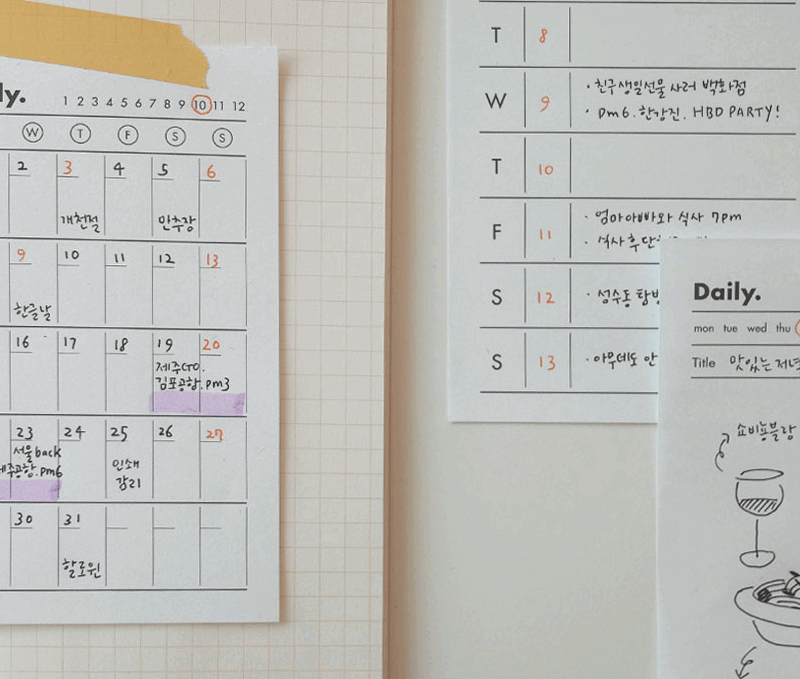 ly.
1 2 3 4 5 6 7 8 9 10 11 12
W T F S S
2 3 4 5 6
개천절 만추장
9 10 11 12 13
한글날
16 17 18 19 20
제주GO.
김포공항.pm3
23 24 25 26 27
서울back
제주공항.pm6
인쇄
감리
30 31
할로윈
T 8
W 9
· 친구생일선물 사러 백화점
· pm6. 한강진. HBD PARTY!
T 10
F 11
· 엄마아빠와 식사 7pm
· 식사 후
S 12 · 성수동 탐방
S 13 · 아무데도 안
Daily.
mon tue wed thu
Title 맛있는 저녁
쇼비뇽블랑